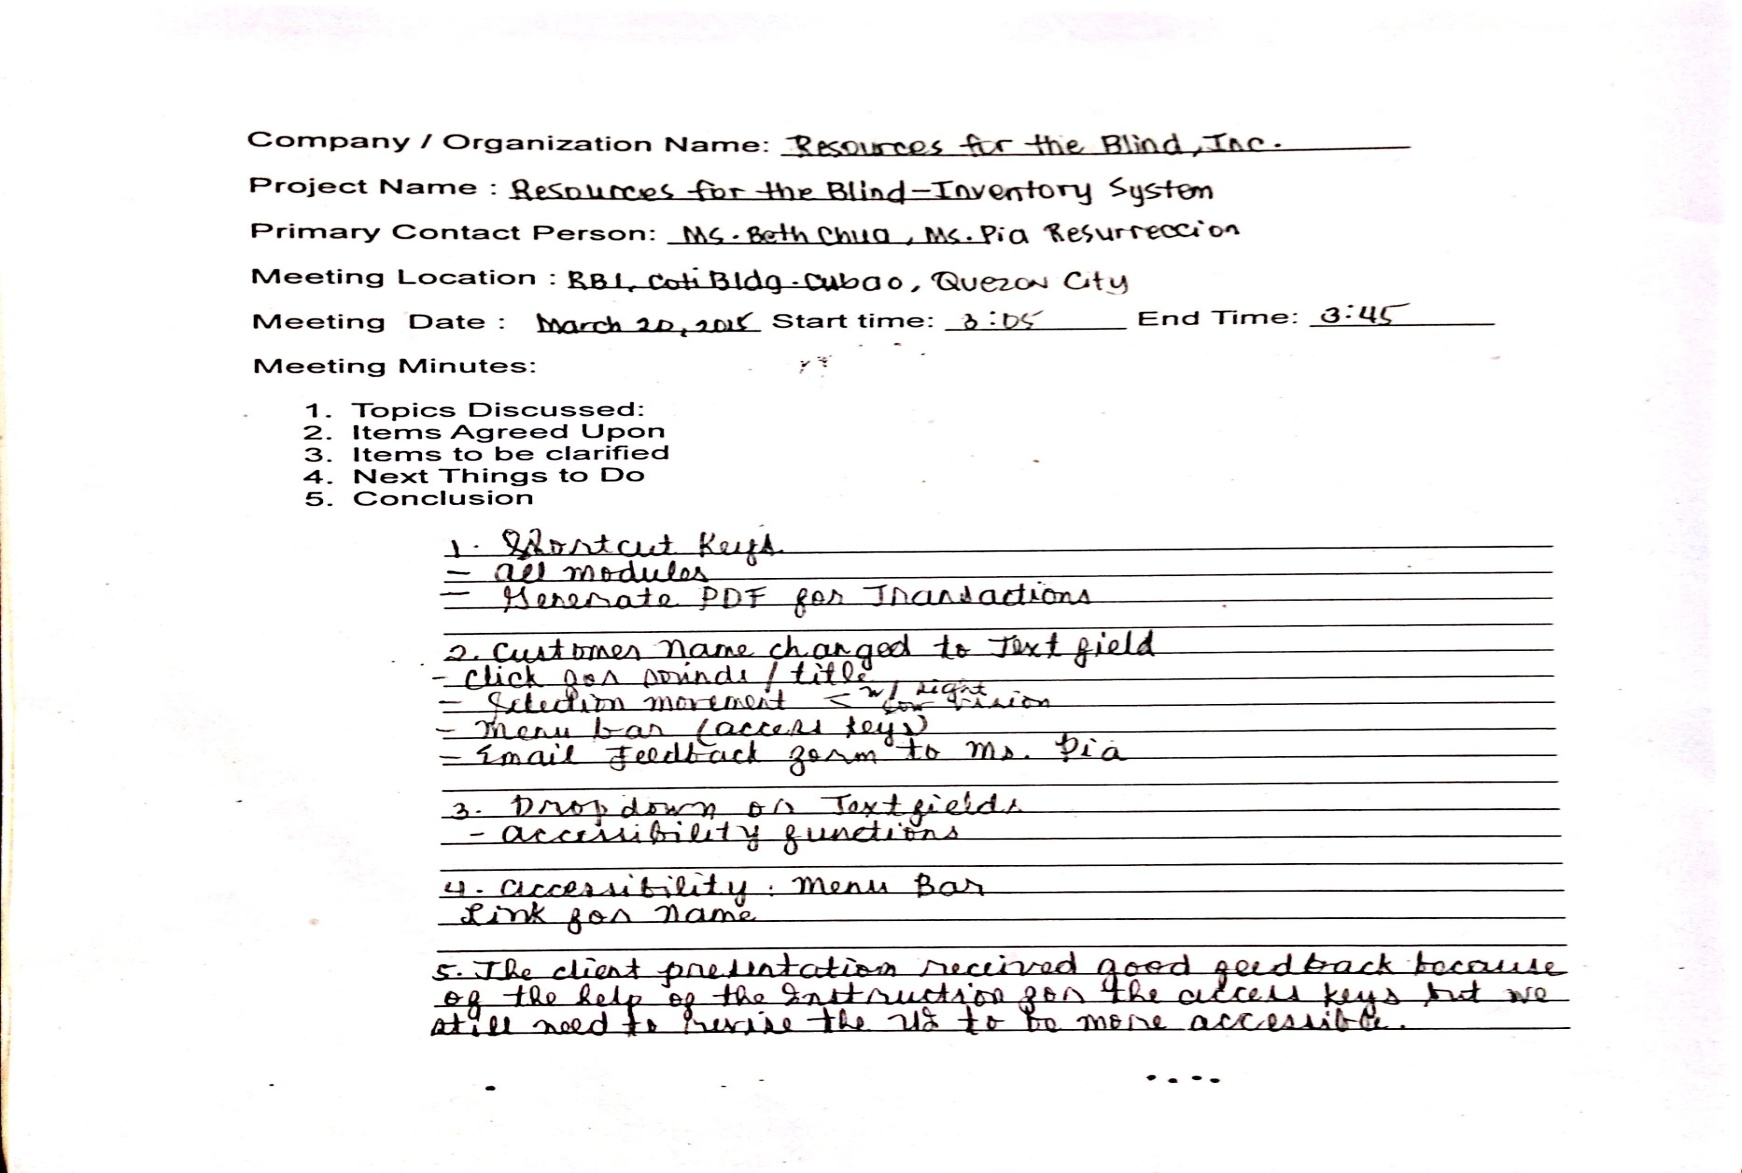 Company / Organization Name: Resources for the Blind, Inc.
Project Name : Resources for the Blind-Inventory System
Primary Contact Person: Ms. Beth Chua, Ms. Pia Resurreccion
Meeting Location : RBI, Coti Bldg. Cubao, Quezon City
Meeting Date : March 20, 2015 Start time: 3:05 End Time: 3:45
Meeting Minutes:
1. Topics Discussed:
2. Items Agreed Upon
3. Items to be clarified
4. Next Things to Do
5. Conclusion
1. Shortcut Keys
- All modules
- Generate PDF for Transactions
2. Customer Name changed to Text field
- Click for sounds / title
- Selection movement < w/ sight
low vision
- Menu bar (access keys)
- Email Feedback form to Ms. Pia
3. Drop down or Textfields
- accessibility functions
4. Accessibility : Menu Bar
Link for name
5. The client presentation received good feedback because
of the help of the Instruction for the access keys but we
still need to revise the UI to be more accessible.